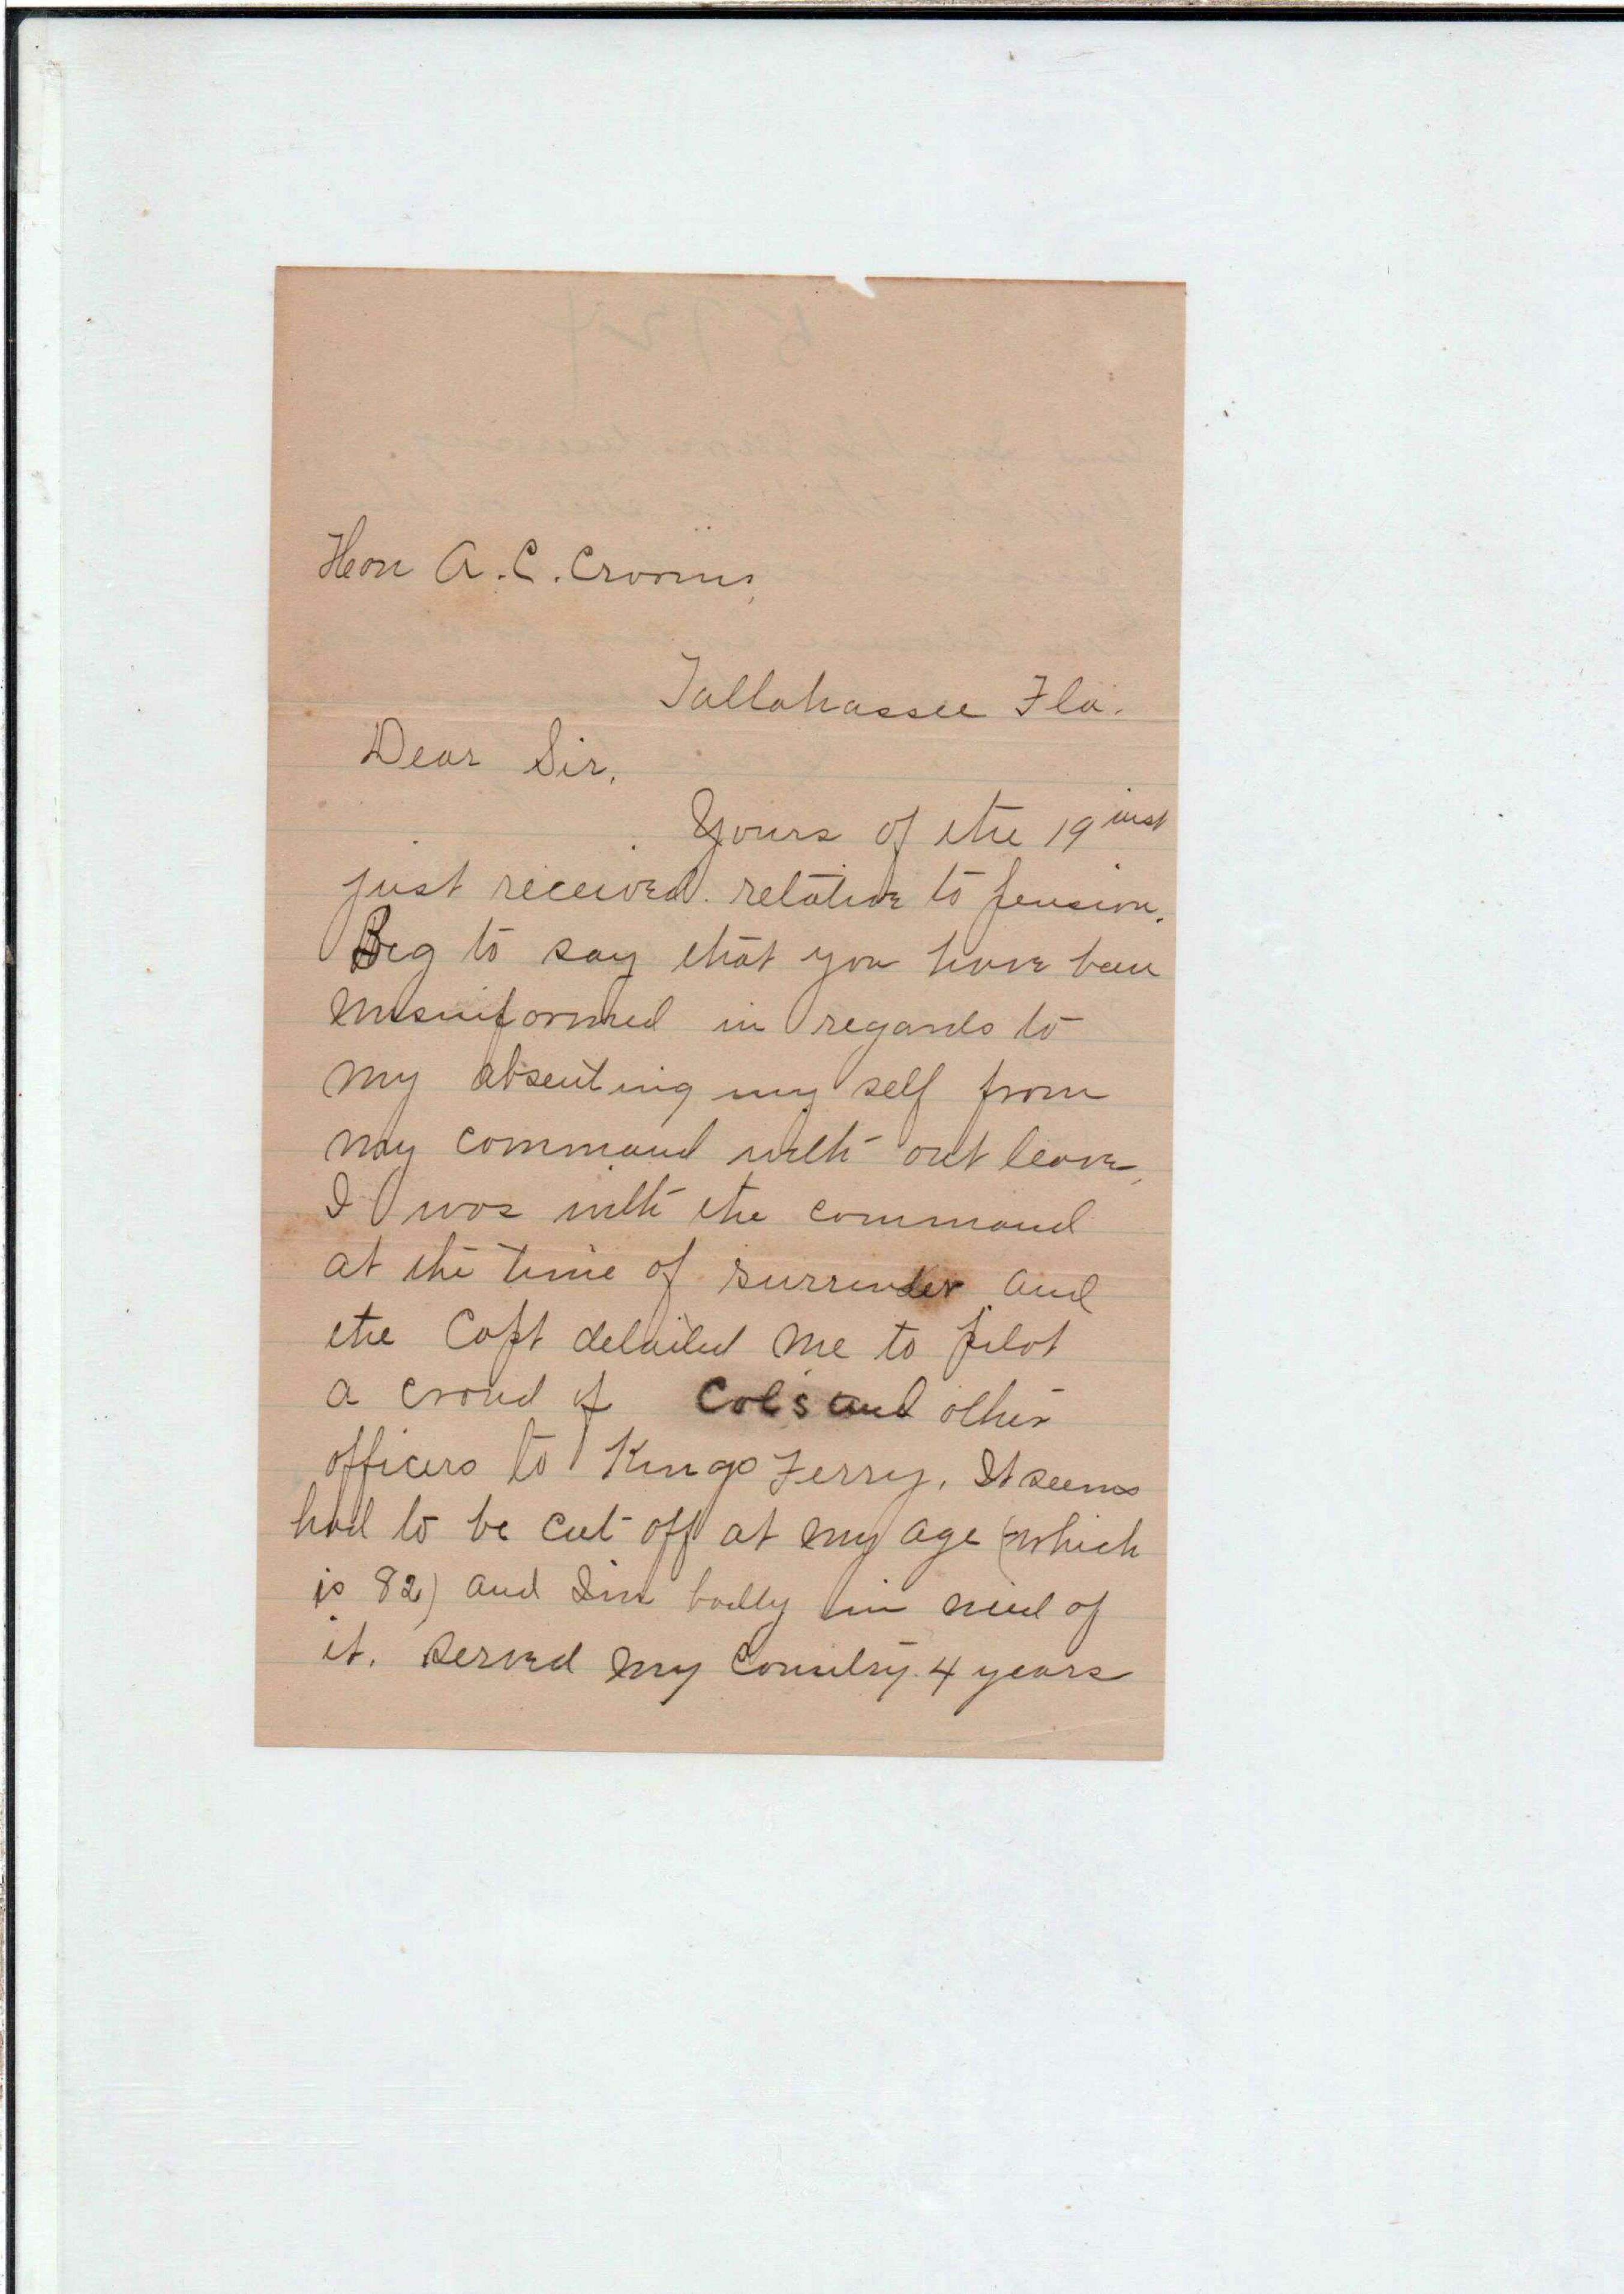 Hon A. C. Croom,
Tallahassee Fla.
Dear Sir,
Yours of the 19 inst
just received. relative to pension.
Beg to say that you have been
misinformed in regards to
my absenting my self from
my command with out leave,
I was with the command
at the time of surrender and
the Capt detailed me to pilot
a croud of Cols and other
officers to Kings Ferry. It seems
had to be cut off at my age (which
is 82) and Im badly in need of
it. served my Country 4 years